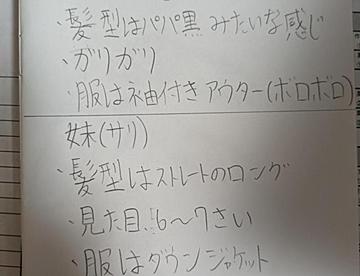 ・髪型はパパ黒みたいな感じ
・ガリガリ
・服は袖付きアウター(ボロボロ)
妹(サリ)
・髪型はストレートのロング
・見た目:6〜7さい
・服はダウンジャケット